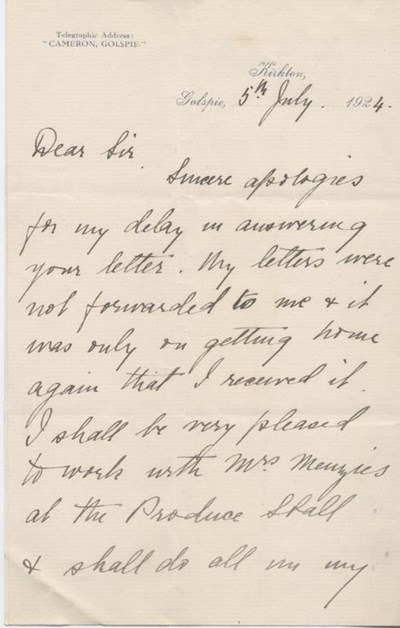 Telegraphic Address:
"CAMERON, GOLSPIE."
Kirkton,
Golspie, 5th July. 1924.
Dear Sir.
Sincere apologies
for my delay in answering
your letter. My letters were
not forwarded to me & it
was only on getting home
again that I received it.
I shall be very pleased
to work with Mrs Menzies
at the Produce Stall
& shall do all in my